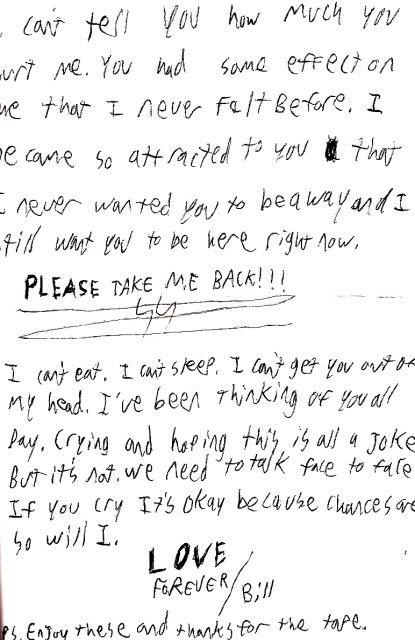 I can't tell you how much you
hurt me. You had some effect on
me that I never felt Before. I
became so attracted to you that
I never wanted you to be away and I
still want you to be here right now.
PLEASE TAKE ME BACK!!!
I can't eat. I can't sleep. I can't get you out of
my head. I've been thinking of you all
Day. Crying and hoping this is all a Joke
But it's not. we need to talk face to face
If you cry It's Okay because chances are
so will I.
LOVE
FOREVER/Bill
PS. Enjoy these and thanks for the tape.